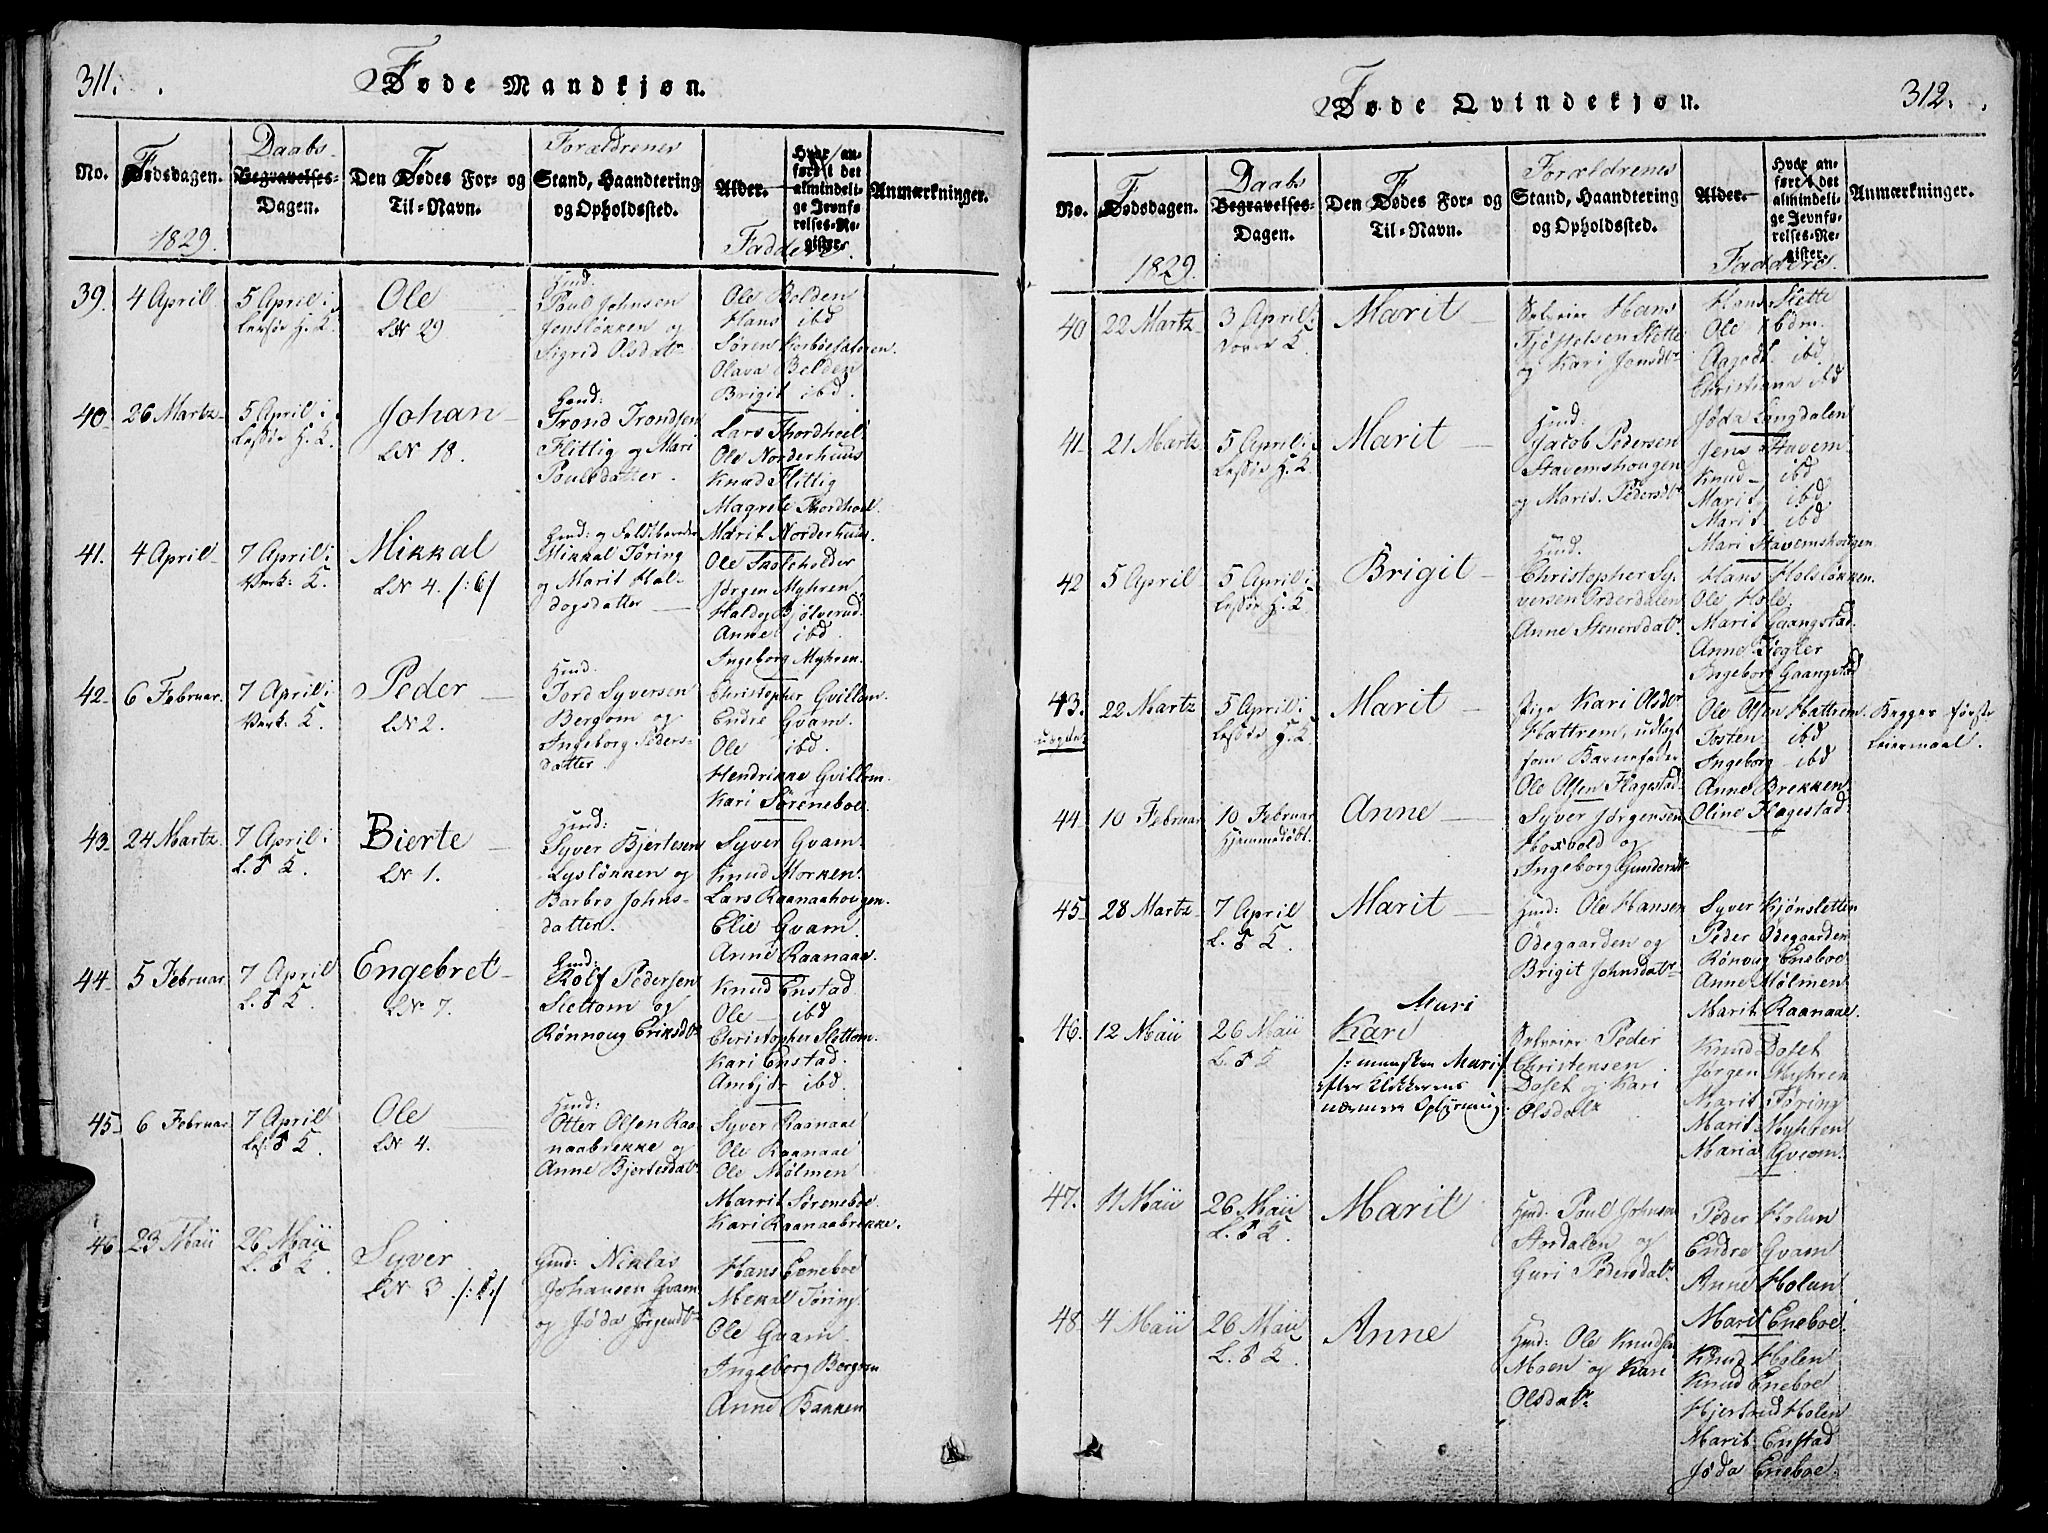 311.
Føde Mandkjøn.
No.
Fødsdagen.
1829.
Daabs
Begravelses-
Dagen.
Den Fødes For- og
Til-Navn.
Forældrenes
Stand, Haandtering
og Opholdssted.
Alder.
Hvor an-
ført i det
almindeli-
ge Jevnfø-
relses-Re-
gister.
Faddere.
Anmærkninger.
39.
4 April
5 April i
Lessøe H. K.
Ole
LN 29
Hmd.
Poul Johnsen
Jonsløkken og
Sigrid Olsdatr
Ole Bolden
Hans ibd
Søren
Olava Bolden
Brigit ibd.
40.
26 Martz
5 April i
Lessøe H. K.
Johan
LN 18.
Hmd:
Trond Trondsen
Flittig og Mari
Poulsdatter.
Lars Thordhoel
Ole Norderhuus
Knud Flittig
Magrete Thordhoel
Marit Norderhuus.
41.
4 April
7 April i
Værk: K.
Mikkal
LN 4. /:6/
Hmd: og
Mikkal Tøring
og Marit Hal-
dogsdatter
Ole Skoteholder
Jørgen Myhren
Haldog Bjølverud
Anne ibd
Ingeborg Myhren.
42.
6 Februar.
7 April i
Værk. K.
Peder
LN 2.
Hmd.
Tord Syversen
Bergom og
Ingeborg Peders-
datter.
Christopher Gvillom.
Endre Gvam.
Ole ibd.
Hendrikke Gvillom.
Kari Søreneboe.
43.
24 Martz
7 April i
L. V K.
Bierte
LN 1.
Hmd:
Syver Bjertesen
Lysløkken og
Barbro Johns-
datter.
Syver Gvam.
Knud Morken.
Lars Raanaahougen.
Elie Gvam.
Anne Raanaae.
44.
5 Februar.
7 April
L. V K.
Engebret
LN 7.
Gmd:
Rolf Pedersen
Slettom og
Rønnoug Eriksdtr
Knud Enstad
Ole ibd
Christopher Slettom.
Kari Enstad.
Ambjør ibd.
45.
6 Februar
7 April
Les: V K.
Ole
LN 4.
Hmd:
Otter Olsen Raa-
naabrekke og
Anne Bjertesdatr
Syver Raanaae
Ole Raanaae
Ole Mølmen
Marrit Søreneboe.
Kari Raanaabrekke.
46
23 Maii
26 Maii
L. V K.
Syver
LN 3. /:1/
Gmd: Niklas
Johansen Gvam
og Jøda Jørgendtr
Hans Eneboe
Mekal Tøring
Ole Gvam
Ingeborg Bergom
Anne Bakken
312.
Føde Qvindekjøn.
No.
Fødsdagen.
1829.
Daabs
Begravelses-
Dagen.
Den Fødes For- og
Til-Navn.
Forældrenes
Stand, Haandtering
og Opholdssted.
Alder.
Hvor an-
ført i det
almindeli-
ge Jevnfø-
relses-Re-
gister.
Faddere.
Anmærkninger.
40
22 Martz
3 April
Dovre K.
Marit
Selveier Hans
Tjøstelsen Slette
og Kari Jonsdtr
Hans Slette
Ole ibdm.
Aagodt ibd
Christiana ibd
Jøda Langdalen
41.
21 Martz
5 April i
Lessøe H. K.
Marit
Hmd:
Jacob Pedersen
Stavemshougen
og Marit Pedersdtr
Jens Stavem
Knud ibd
Marit ibd.
Marit ibd
Mari Stavemshougen
42
5 April
5 April i
Lessøe H. K.
Brigit
Hmd.
Christopher Sy-
versen Orderdalen
Anne Stenersdatr
Hans Holsløkken.
Ole Hole
Marit Gaangstad
Anne Ziegler
Ingeborg Gaangstad
43.
uægte
22 Martz
5 April i
Lessøe H. K.
Marit
Pige Kari Olsdtr
Hattrem, udlagt
som Barnefader
Ole Olsen Flagestad
Ole Olsen Hattrem.
Josten ibd
Ingeborg ibd
Anne Brekken
Oline Flagestad.
Begges første
Leiermaal.
44
10 Februar
10 Februar
Hjemmedøbt.
Anne
Syver Jørgensen
Hoxvold og
Ingeborg Gunderdtr
45.
28 Martz
7 April
L. V K.
Marit
Hmd: Ole Hansen
Ødegaarden og
Brigit Johnsdatr
Syver Kjønsletten
Peder Ødegaarden
Rønnug Eneboe
Anne Mølmen
Marit Raanaae.
46.
12 Maii
26 Maii
L. V K.
Mari
Kari
Selveier Peder
Christensen
Doset og Kari
Olsdatr
Knud Doset
Jørgen Myhren
Marit Tøring
Marit Myhren
Maria Gvam.
47.
11 Maii
26 Maii
L. V K.
Marit
Hmd: Poul Johnsen
Stordalen og
Guri Pedersdatr
Peder Holen
Endre Gvam
Anne Holen
Marit Eneboe
48
4 Maii
26 Maii
L. V K.
Anne
Hmd: Ole Knudsen
Moen og Kari
Olsdatr
Knud Holen
Knud Eneboe
Hjertrud Holen
Marit Enstad
Jøda Eneboe.